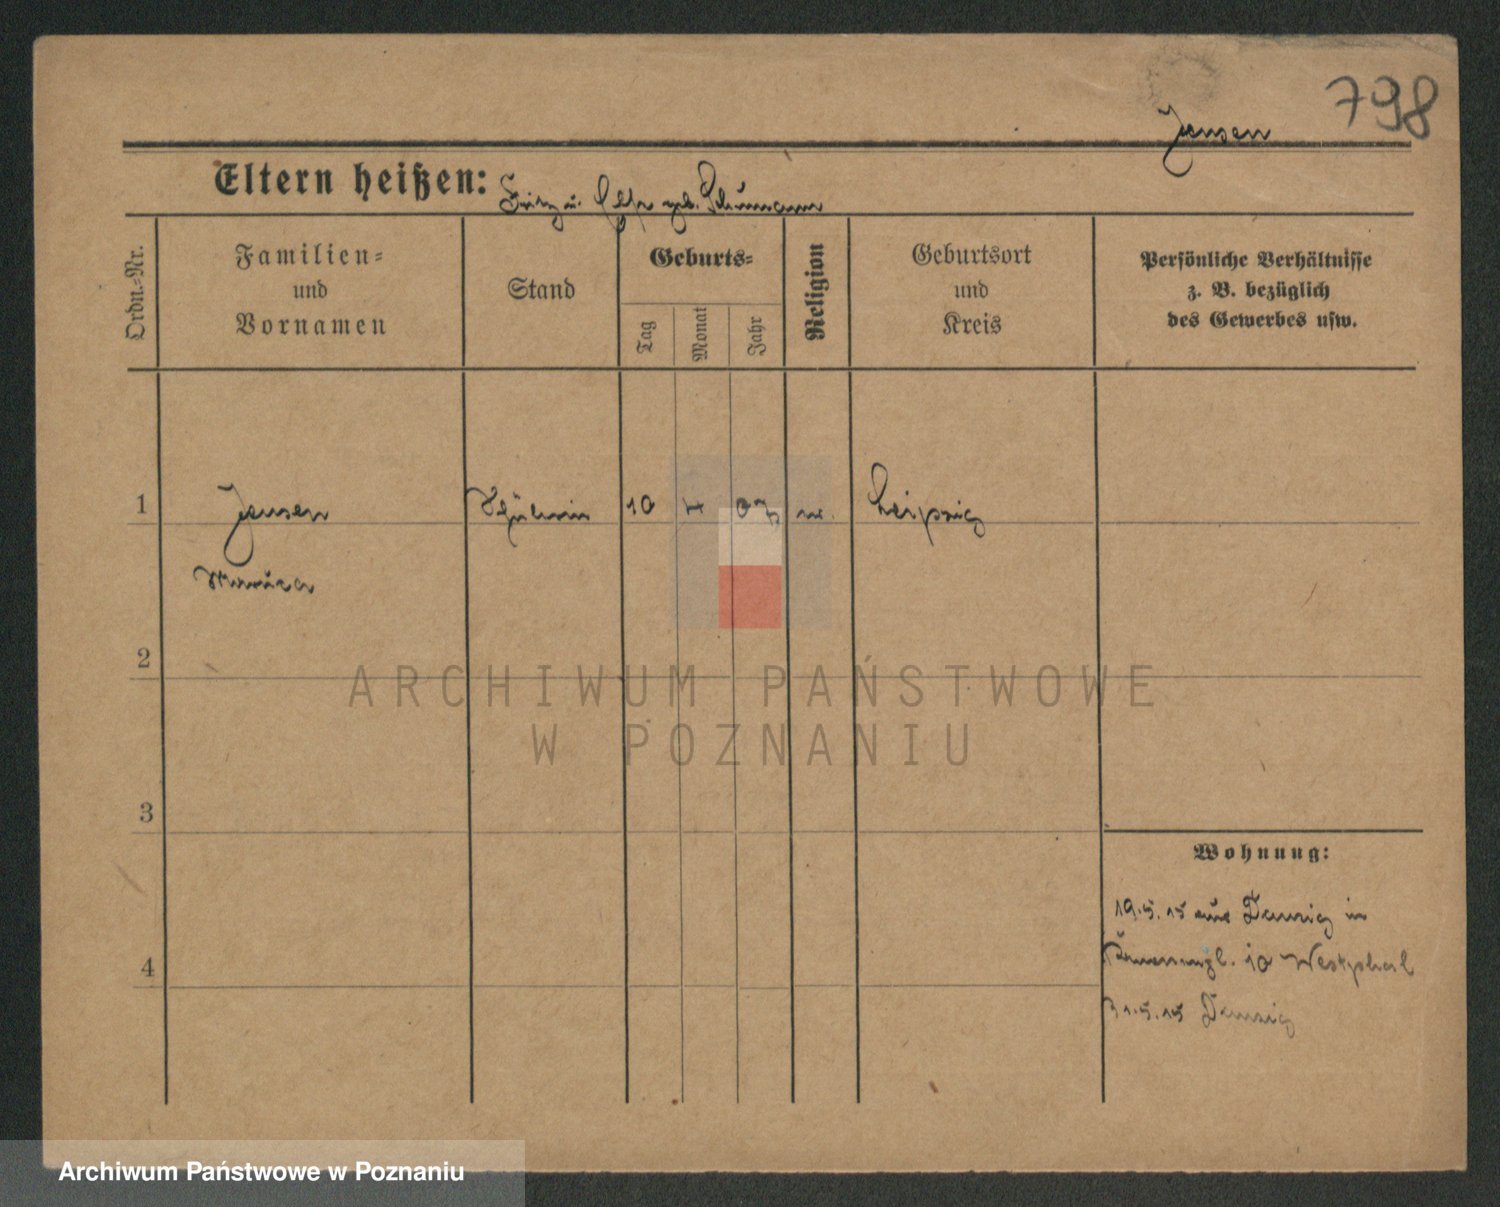 798
Jensen
Eltern heißen: Fritz u. Else geb. Schumann
Ordn.-Nr.
Familien-
und
Vornamen
Stand
Geburts-
Tag
Monat
Jahr
Religion
Geburtsort
und
Kreis
Persönliche Verhältnisse
z. B. bezüglich
des Gewerbes usw.
1
Jensen
Schülerin
10
07
Leipzig
2
ARCHIWUM PAŃSTWOWE
W POZNANIU
3
Wohnung:
19.5.15 aus Danzig in
10 Westphal
4
31.5.15 Danzig
Archiwum Państwowe w Poznaniu